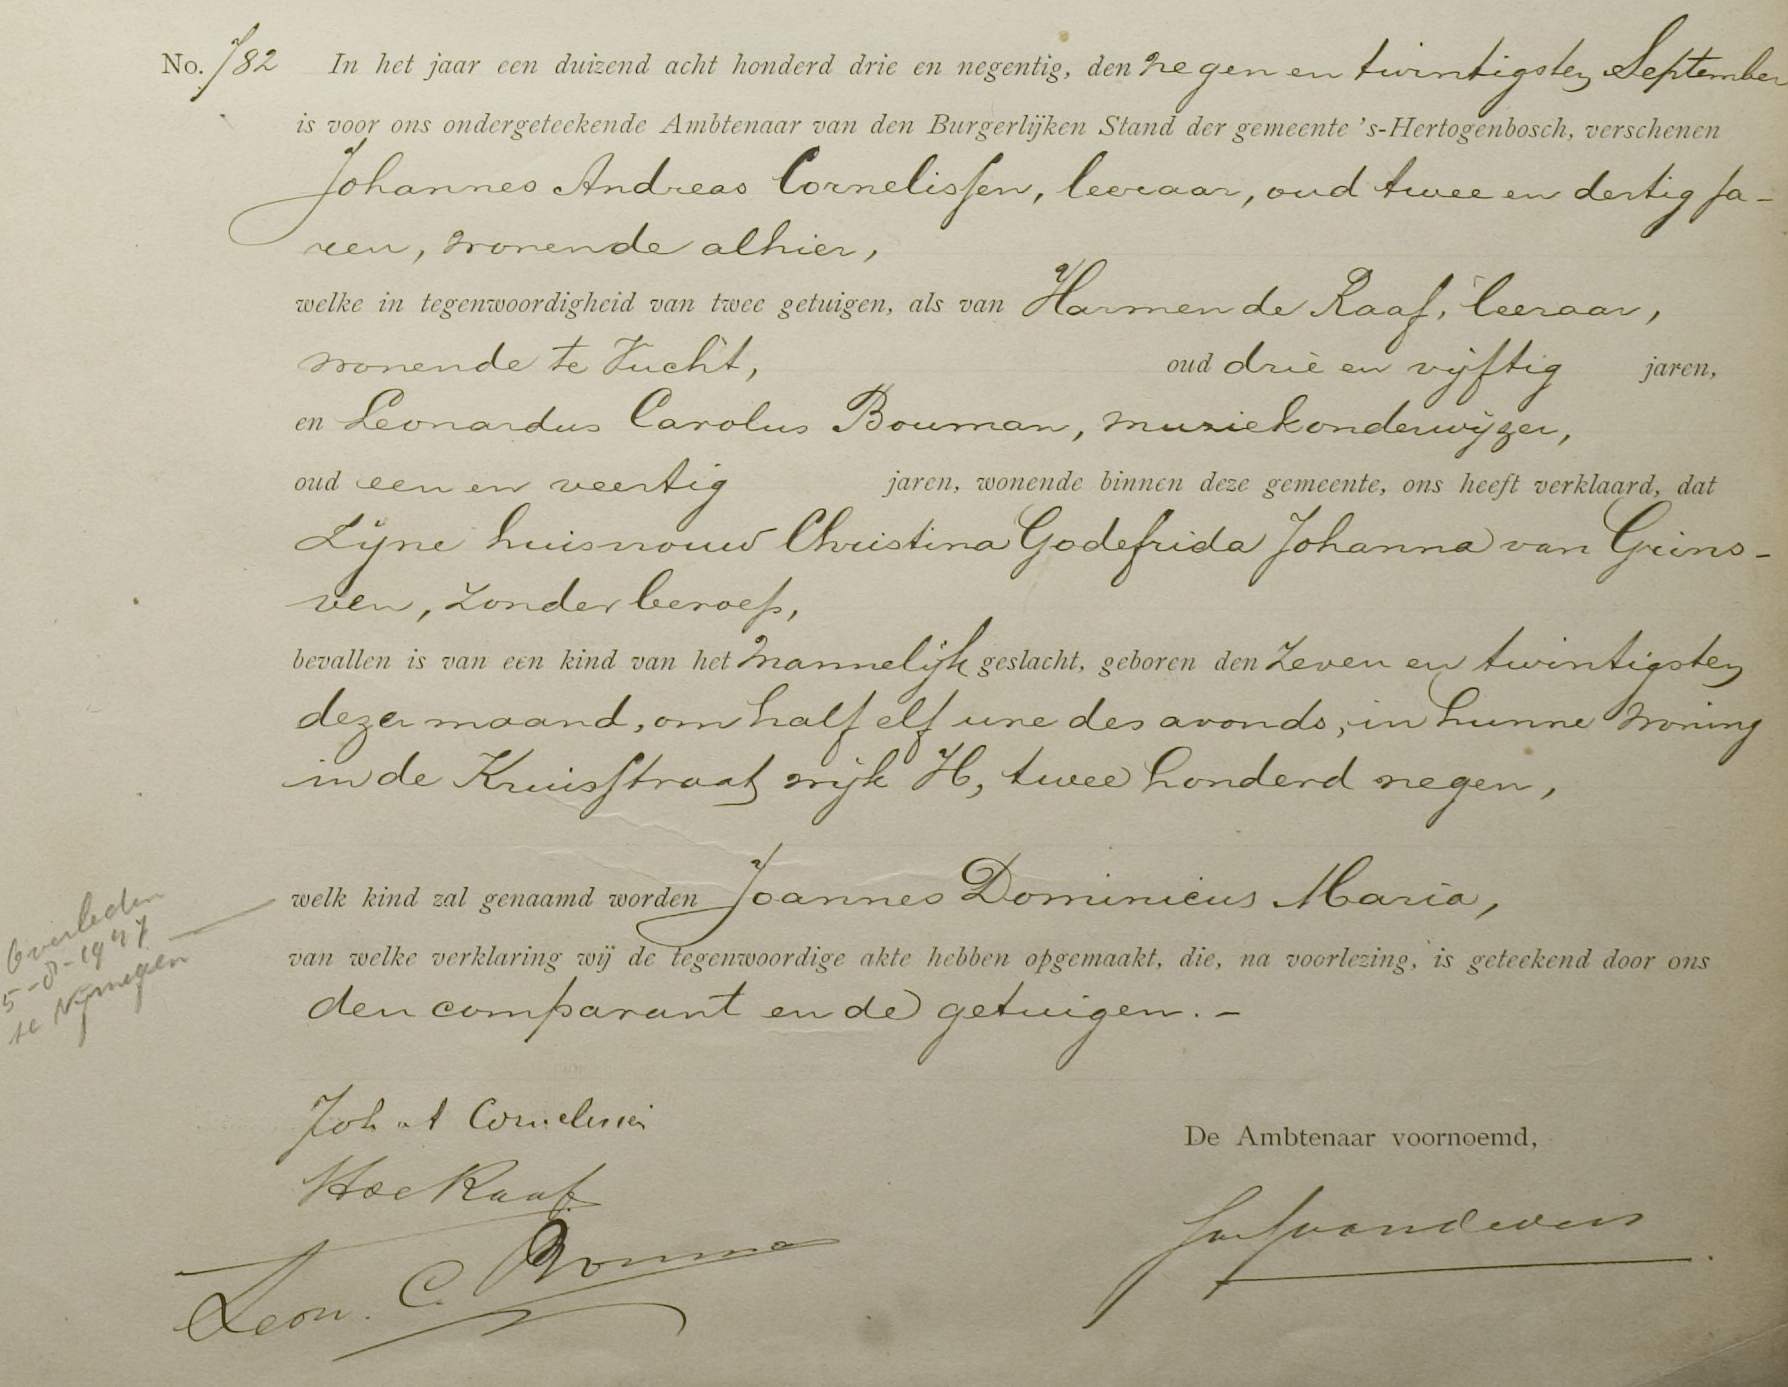 No. 782 In het jaar een duizend acht honderd drie en negentig, den negen en twintigsten September
is voor ons ondergeteekende Ambtenaar van den Burgerlijken Stand der gemeente 's-Hertogenbosch, verschenen
Johannes Andreas Cornelissen, leeraar, oud twee en dertig ja-
ren, wonende alhier,
welke in tegenwoordigheid van twee getuigen, als van Harmen de Raaf, leeraar,
wonende te Vucht, oud drie en vijftig jaren,
en Leonardus Carolus Bouman, muziekonderwijzer,
oud een en veertig jaren, wonende binnen deze gemeente, ons heeft verklaard, dat
Zijne huisvrouw Christina Godefrida Johanna van Grins-
ven, zonder beroep,
bevallen is van een kind van het mannelijk geslacht, geboren den zeven en twintigsten
dezer maand, om half elf ure des avonds, in hunne woning
in de Kruisstraat wijk H, twee honderd negen,
welk kind zal genaamd worden Joannes Dominicus Maria,
van welke verklaring wij de tegenwoordige akte hebben opgemaakt, die, na voorlezing, is geteekend door ons
den comparant en de getuigen. -
Overleden
5-8-1947
te Nijmegen
Joh. A Cornelissen
H de Raaf
De Ambtenaar voornoemd,
Leon. C. Bouman